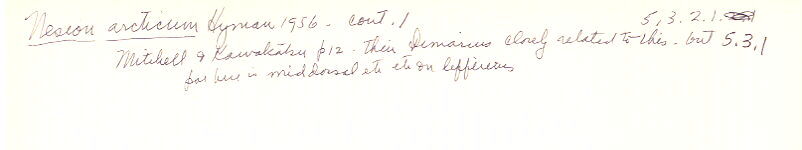 Nesion arcticum Hyman 1956 - cont. 1 5,3.2.1.
Mitchell & Kawakatsu p12 - their Dimarcus closely related to this - but 5.3.1
here is mid dorsal etc etc on differences